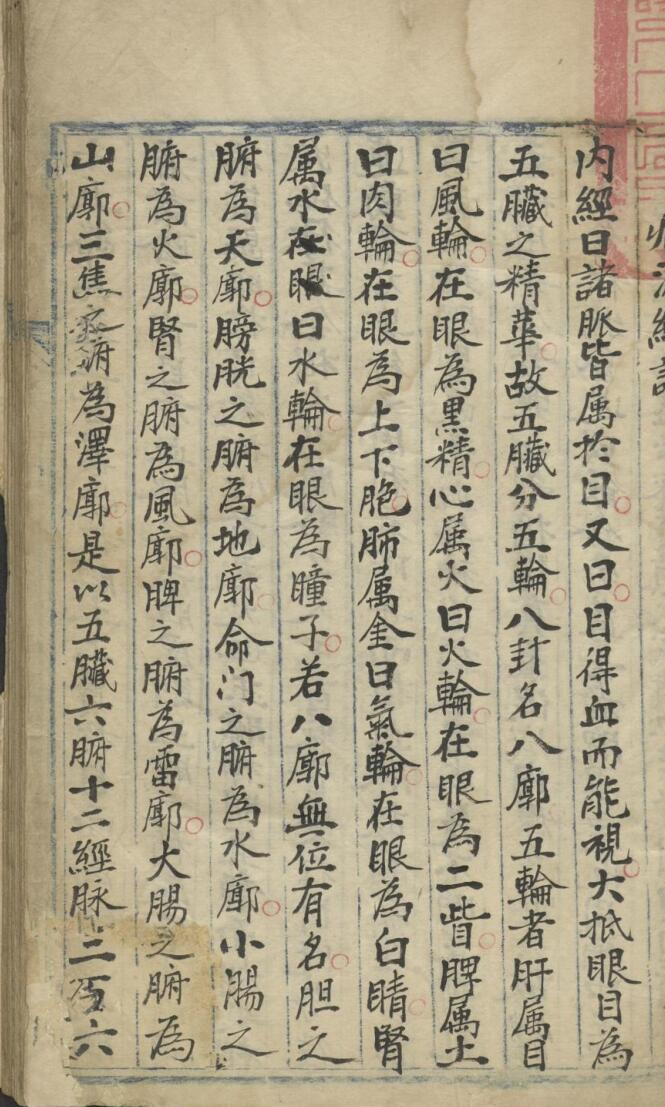 內經曰諸脈皆属於目又曰目得血而能視大抵眼目為
五臟之精華故五臟分五輪八封名八廓五輪者肝属目
曰風輪在眼為黒精心属火曰火輪在眼為二眥脾属土
曰肉輪在眼為上下胞肺属金曰氣輪在眼為白睛腎
属水在眼曰水輪在眼為瞳子若八廓無位有名胆之
腑為天廓膀胱之腑為地廓命门之腑為水廓小腸之
腑為火廓腎之腑為風廓脾之腑為雷廓大腸之腑為
山廓三焦之腑為澤廓是以五臟六腑十二經脉二百六